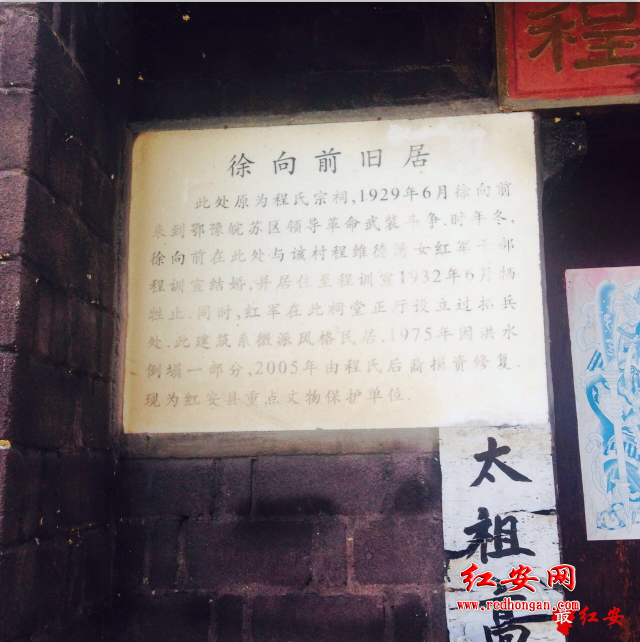 程
徐向前旧居
此处原为程氏宗祠,1929年6月徐向前
来到鄂豫皖苏区领导革命武装斗争.时年冬,
徐向前在此处与该村程维德湾女红军干部
程训宣结婚,并居住至程训宣1932年6月牺
牲止.同时,红军在此祠堂正厅设立过招兵
处.此建筑系徽派风格民居,1975年因洪水
倒塌一部分,2005年由程氏后裔捐资修复.
现为红安县重点文物保护单位.
太祖高
红安网
www.redhongan.com
最红安